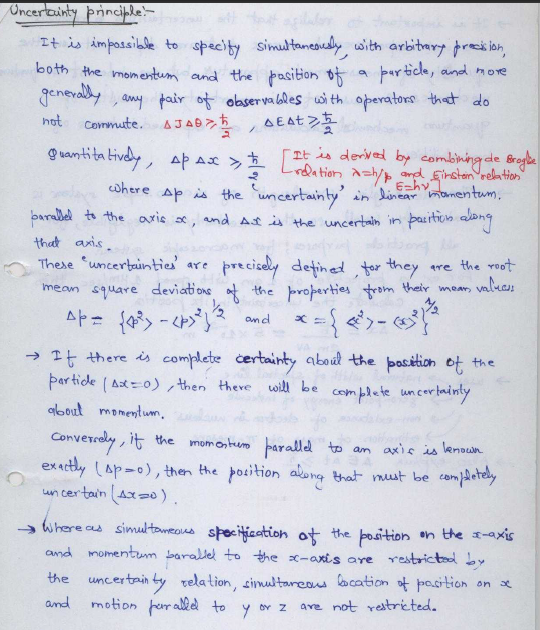 Uncertainty principle:-
It is impossible to specify simultaneously, with arbitrary precision,
both the momentum and the position of a particle, and more
generally, any pair of observables with operators that do
not commute. ΔJΔθ ≥ ħ/2, ΔEΔt ≥ ħ/2
Quantitatively, Δp Δx ≥ ħ/2 [It is derived by combining de Broglie
relation λ=h/p and Einston relation
E=hν]
where Δp is the 'uncertainty' in linear momentum.
parallel to the axis x, and Δx is the uncertain in position along
that axis.
These 'uncertainties' are precisely defined, for they are the root
mean square deviations of the properties from their mean values
Δp = {<p²> - <p>²}^1/2 and x = {<x²> - <x>²}^1/2
→ If there is complete certainty about the position of the
particle (Δx=0), then there will be complete uncertainty
about momentum.
Conversely, if the momentum parallel to an axis is known
exactly (Δp=0), then the position along that must be completely
uncertain (Δx=∞).
→ Whereas simultaneous specification of the position on the x-axis
and momentum parallel to the x-axis are restricted by
the uncertainty relation, simultaneous location of position on x
and motion parallel to y or z are not restricted.